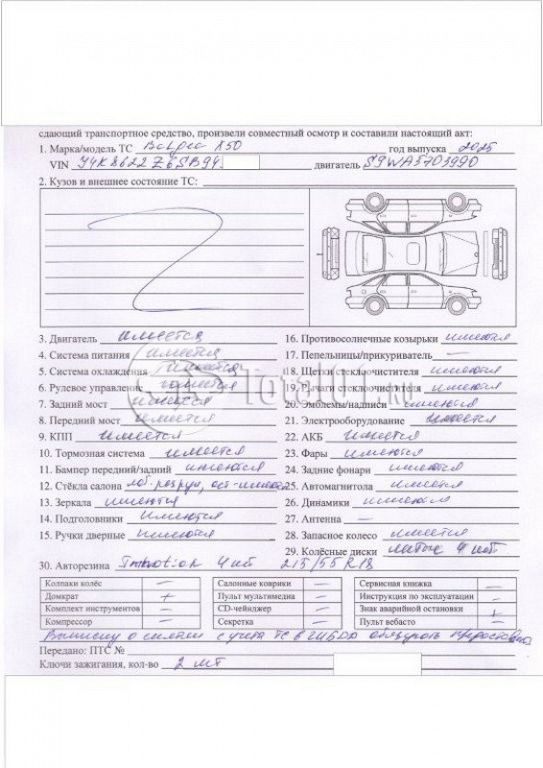 сдающий транспортное средство, произвели совместный осмотр и составили настоящий акт:
1. Марка/модель ТС X50 год выпуска 2025
VIN двигатель
2. Кузов и внешнее состояние ТС:
3. Двигатель имеется 16. Противосолнечные козырьки имеются
4. Система питания имеется 17. Пепельницы/прикуриватель —
5. Система охлаждения имеется 18. Щетки стеклоочистителя имеются
6. Рулевое управление имеется 19. Рычаги стеклоочистителя имеются
7. Задний мост имеется 20. Эмблемы/надписи имеются
8. Передний мост имеется 21. Электрооборудование имеется
9. КПП имеется 22. АКБ имеется
10. Тормозная система имеется 23. Фары имеются
11. Бампер передний/задний имеются 24. Задние фонари имеются
12. Стёкла салона лоб. разруш, ост-имеются 25. Автомагнитола имеется
13. Зеркала имеются 26. Динамики имеются
14. Подголовники имеются 27. Антенна —
15. Ручки дверные имеются 28. Запасное колесо имеется
29. Колёсные диски литые 4 шт
30. Авторезина 4 шт 215/55 R18
Колпаки колёс — Салонные коврики — Сервисная книжка —
Домкрат + Пульт мультимедиа — Инструкция по эксплуатации —
Комплект инструментов — CD-чейнджер — Знак аварийной остановки +
Компрессор — Секретка — Пульт вебасто —
Выписку о снятии с учета ТС в ГИБДД обязуюсь предоставить
Передано: ПТС №
Ключи зажигания, кол-во 2 шт